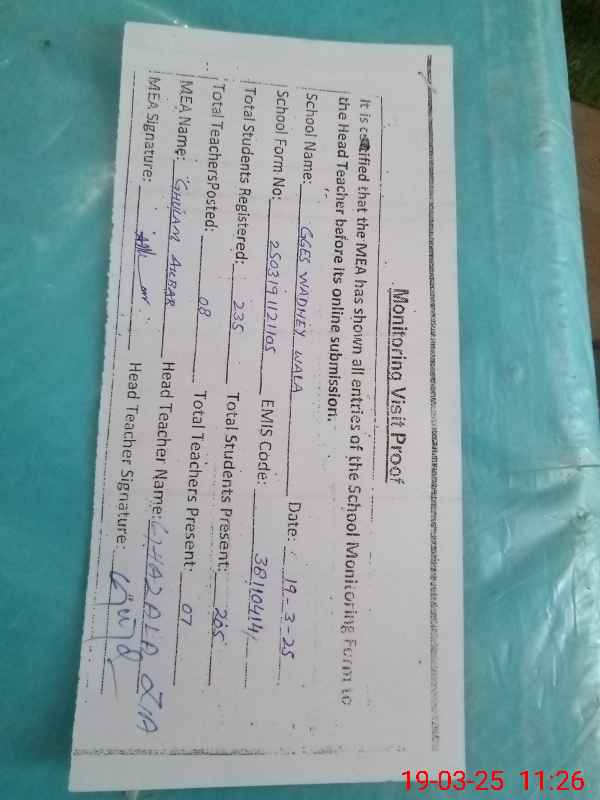 Monitoring Visit Proof
It is certified that the MEA has shown all entries of the School Monitoring Form to
the Head Teacher before its online submission.
School Name: GGES WADHEY WALA Date: 19-3-25
School Form No: 2503191121105 EMIS Code: 38110414
Total Students Registered: 235 Total Students Present: 205
Total TeachersPosted: 08 Total Teachers Present: 07
MEA Name: GHULAM AKBAR Head Teacher Name: GHAZALA ZIA
MEA Signature: Head Teacher Signature:
19-03-25 11:26